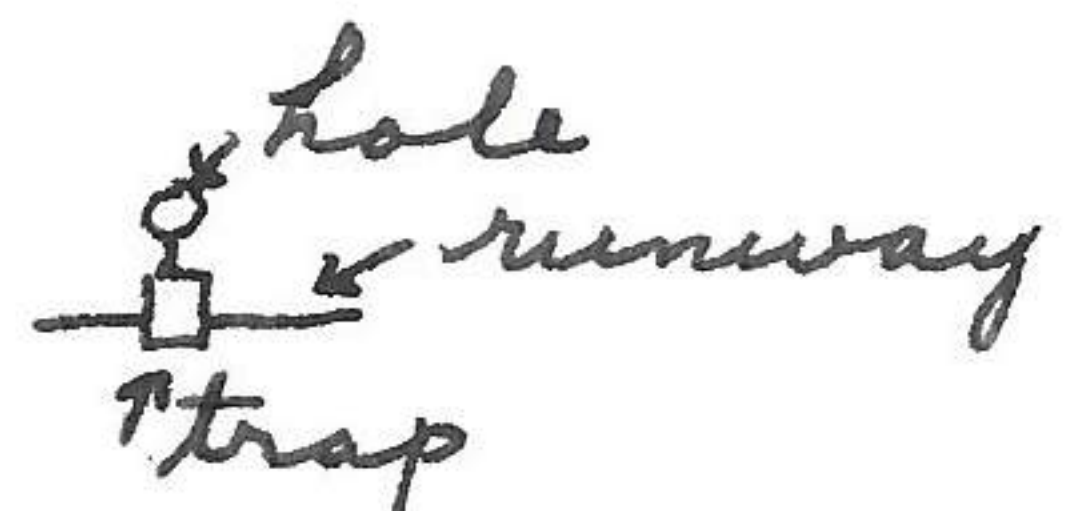 hole
runway
trap